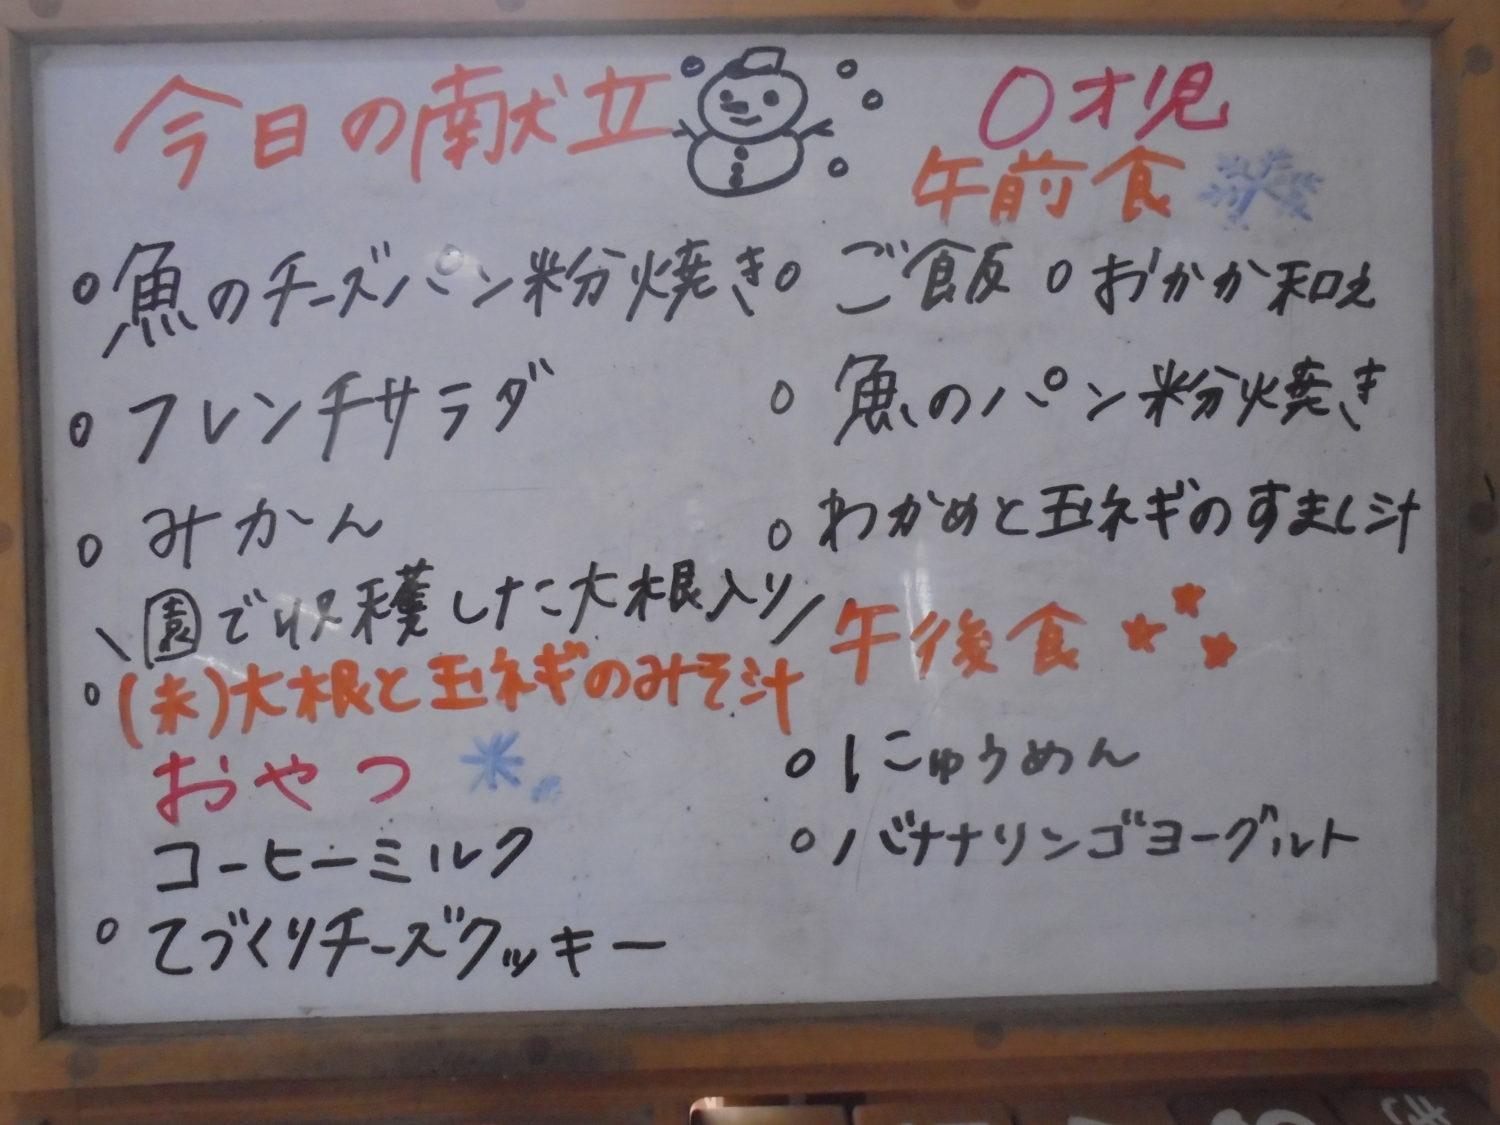 今日の献立
○魚のチーズパン粉焼き
○フレンチサラダ
○みかん
\園で収穫した大根入り/
○(未)大根と玉ネギのみそ汁
おやつ
コーヒーミルク
○てづくりチーズクッキー
0才児
午前食
○ご飯 ○おかか和え
○魚のパン粉焼き
○わかめと玉ネギのすまし汁
午後食
○にゅうめん
○バナナリンゴヨーグルト